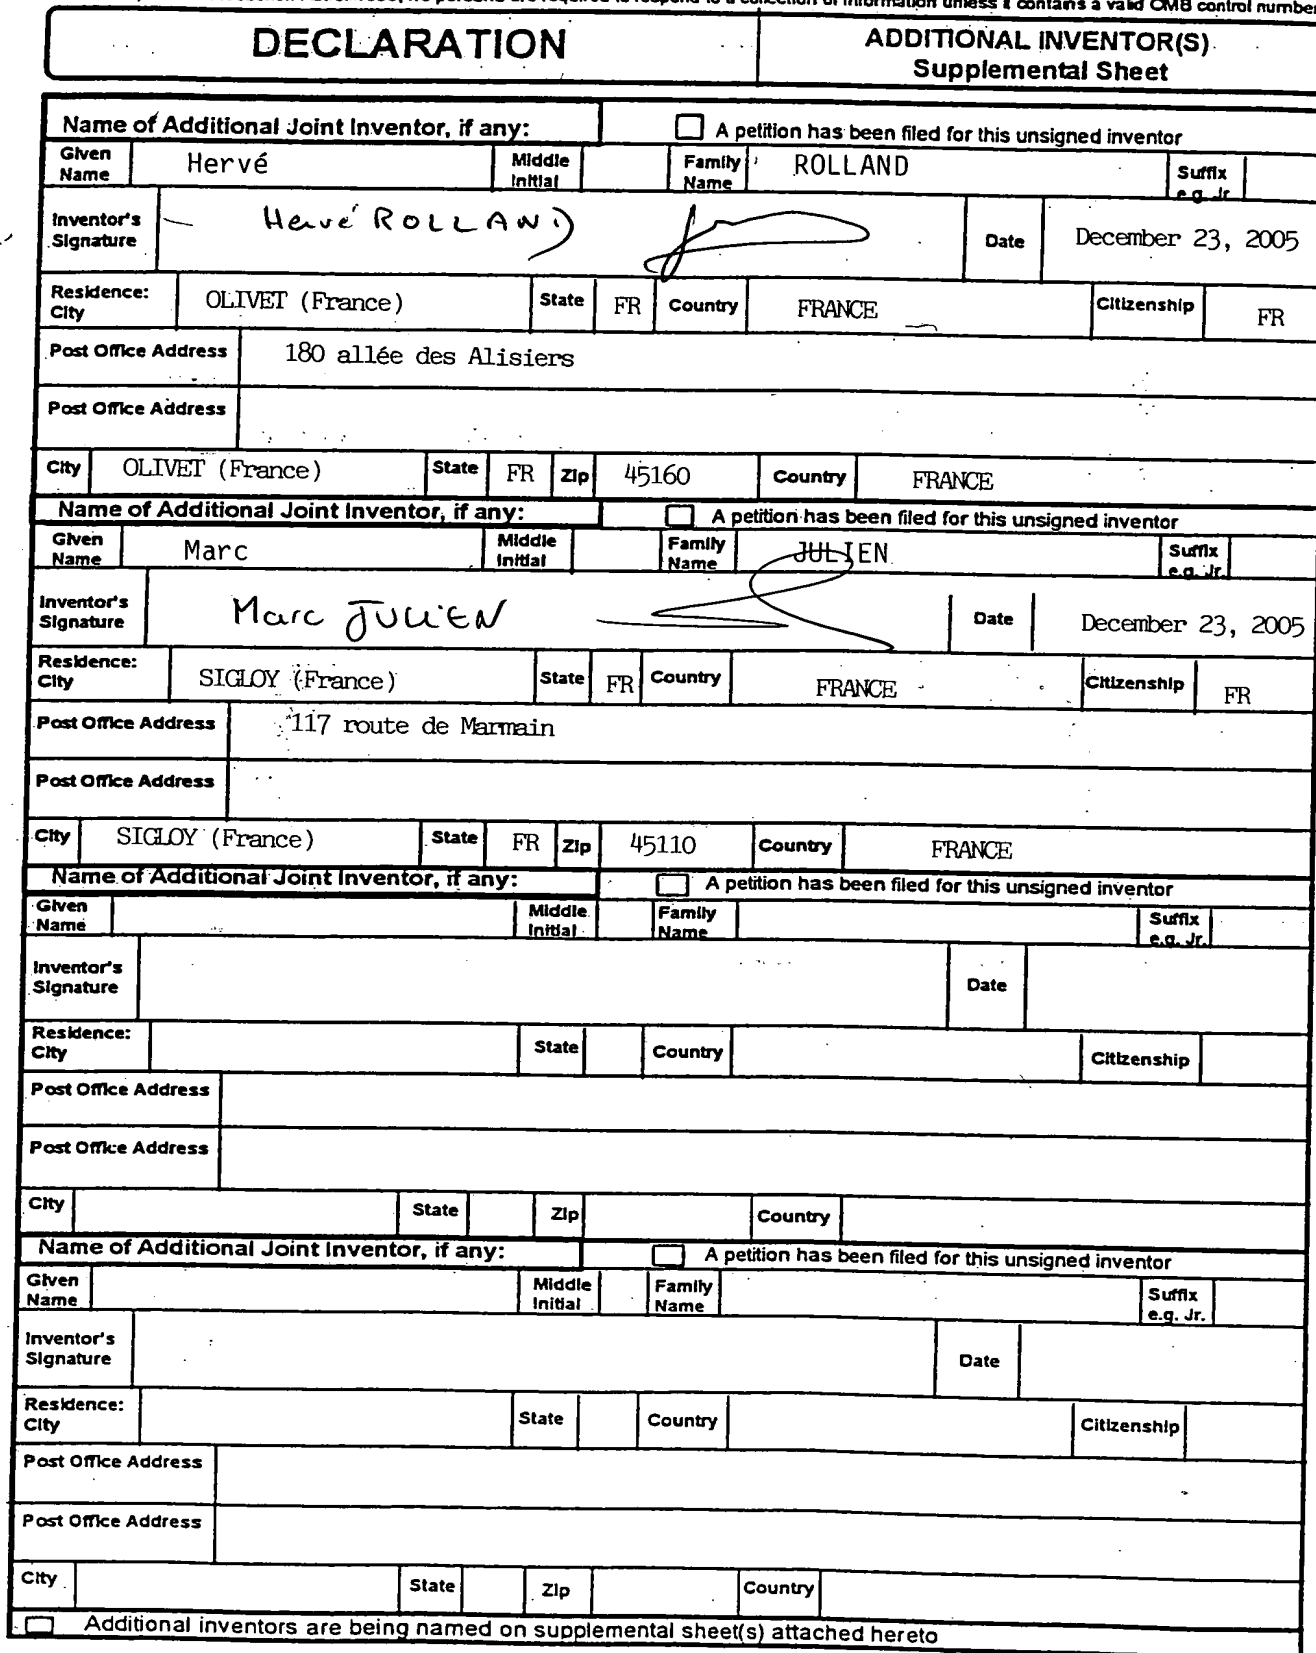 to a collection of information unless it contains a valid OMB control number
DECLARATION
ADDITIONAL INVENTOR(S)
Supplemental Sheet
Name of Additional Joint Inventor, if any:
A petition has been filed for this unsigned inventor
Given Name Hervé Middle Initial Family Name ROLLAND Suffix e.g. Jr.
Inventor's Signature Hervé ROLLAND Date December 23, 2005
Residence: City OLIVET (France) State FR Country FRANCE Citizenship FR
Post Office Address 180 allée des Alisiers
Post Office Address
City OLIVET (France) State FR Zip 45160 Country FRANCE
Name of Additional Joint Inventor, if any:
A petition has been filed for this unsigned inventor
Given Name Marc Middle Initial Family Name JULIEN Suffix e.g. Jr.
Inventor's Signature Marc JULIEN Date December 23, 2005
Residence: City SIGLOY (France) State FR Country FRANCE Citizenship FR
Post Office Address 117 route de Marmain
Post Office Address
City SIGLOY (France) State FR Zip 45110 Country FRANCE
Name of Additional Joint Inventor, if any:
A petition has been filed for this unsigned inventor
Given Name Middle Initial Family Name Suffix e.g. Jr.
Inventor's Signature Date
Residence: City State Country Citizenship
Post Office Address
Post Office Address
City State Zip Country
Name of Additional Joint Inventor, if any:
A petition has been filed for this unsigned inventor
Given Name Middle Initial Family Name Suffix e.g. Jr.
Inventor's Signature Date
Residence: City State Country Citizenship
Post Office Address
Post Office Address
City State Zip Country
Additional inventors are being named on supplemental sheet(s) attached hereto